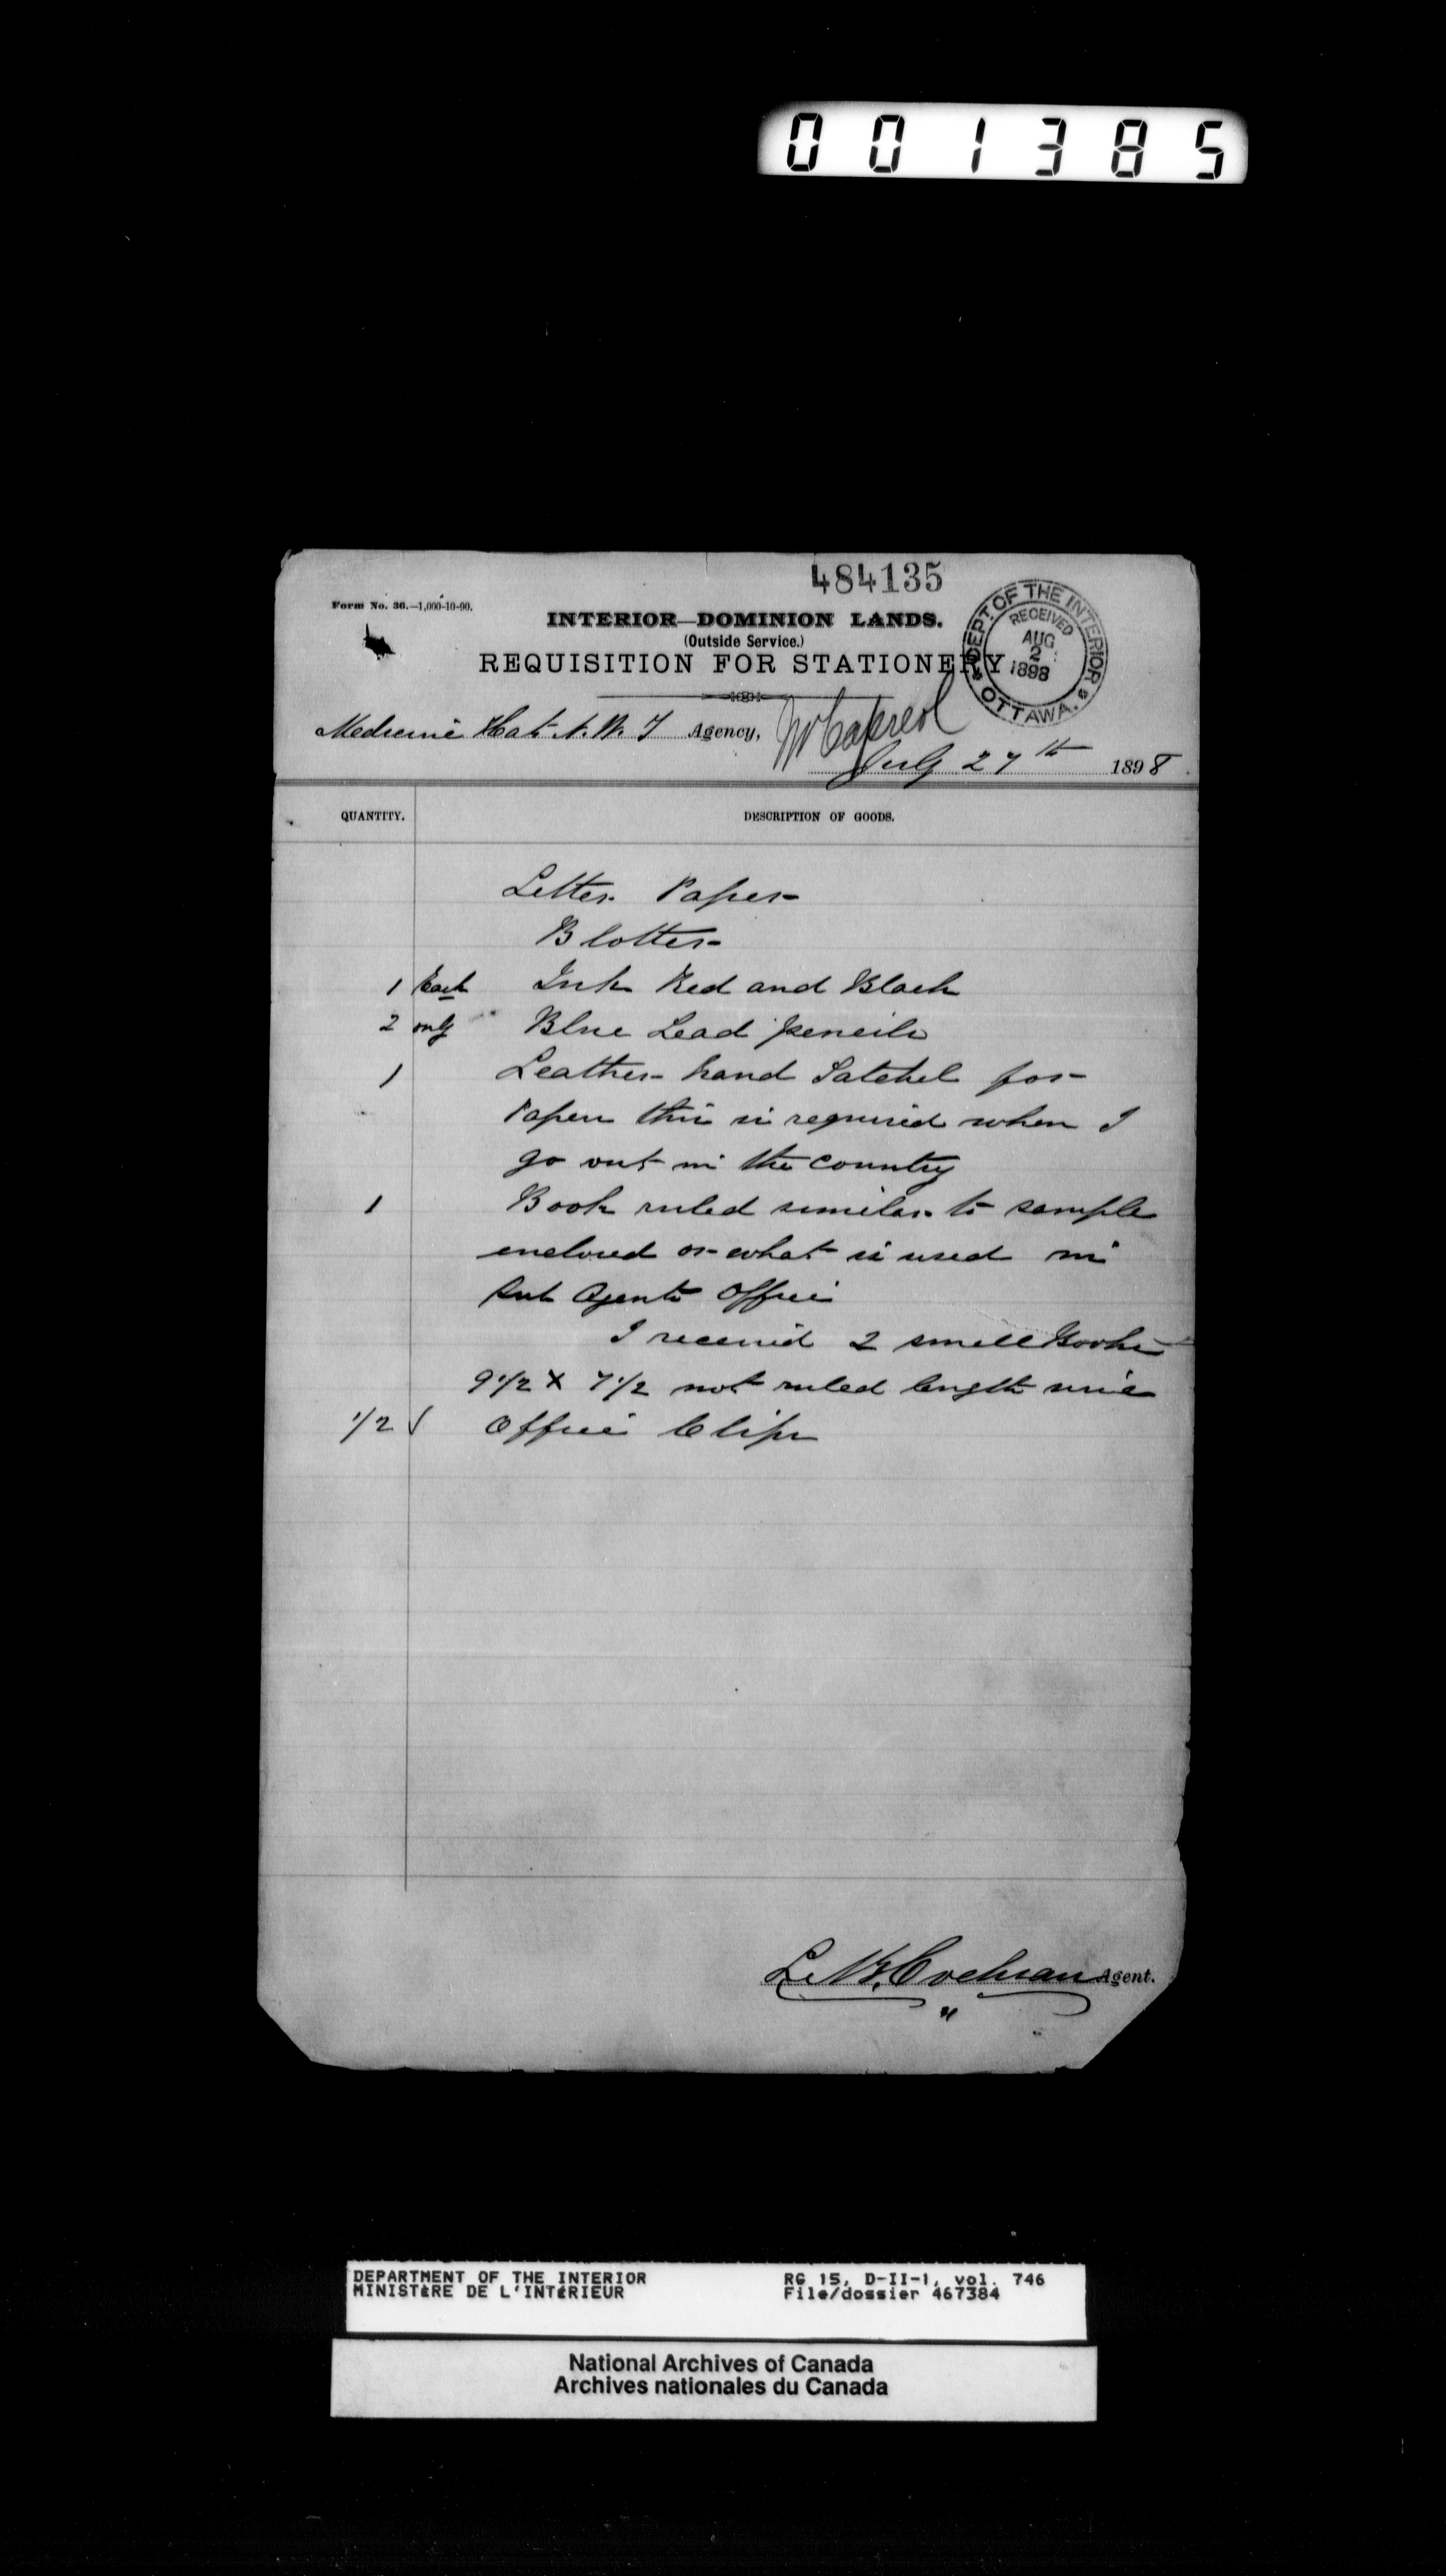 001385
484135
Form No. 36.—1,000-10-90.
INTERIOR—DOMINION LANDS.
(Outside Service.)
REQUISITION FOR STATIONERY
DEPT. OF THE INTERIOR
RECEIVED
AUG
2
1898
OTTAWA.
Medicine Hat N.W.T Agency,
Capreol
July 27th 1898
QUANTITY. DESCRIPTION OF GOODS.
Letter Paper
Blotter
1 Each Ink Red and Black
2 only Blue Lead pencils
1 Leather hand Satchel for
Papers this is required when I
go out in the country
1 Book ruled similar to sample
enclosed or what is used in
Sub Agents Office
I received 2 small Books
9 1/2 X 7 1/2 not ruled length wise
1/2 Office Clips
L. B. Cochran Agent.
DEPARTMENT OF THE INTERIOR RG 15, D-II-1, vol. 746
MINISTÈRE DE L'INTÉRIEUR File/dossier 467384
National Archives of Canada
Archives nationales du Canada